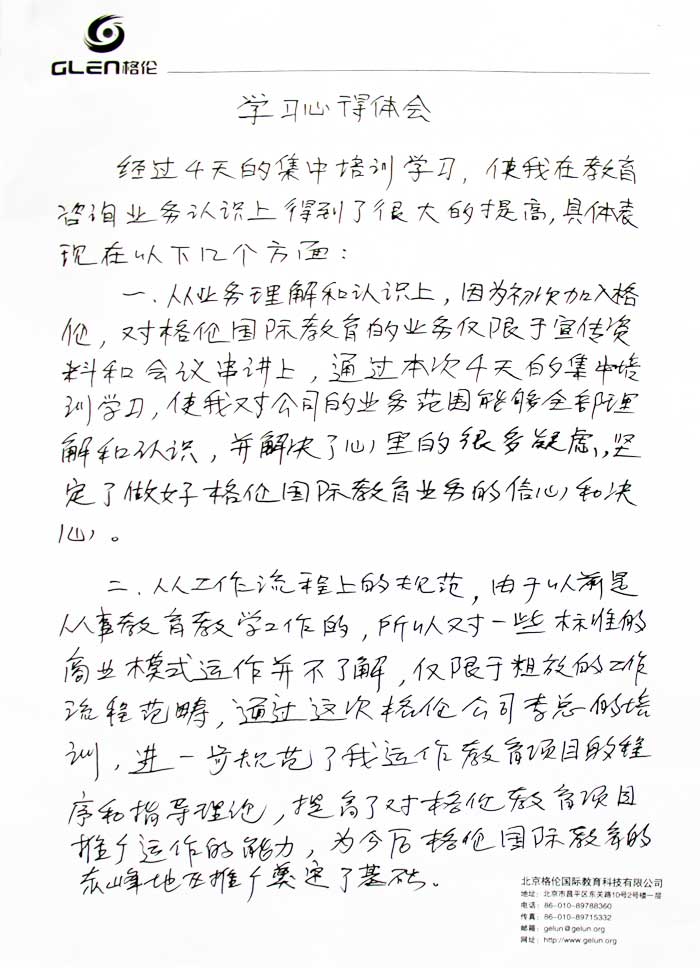 GLEN格伦
学习心得体会
经过4天的集中培训学习，使我在教育
咨询业务认识上得到了很大的提高，具体表
现在以下几个方面：
一．从业务理解和认识上，因为初次加入格
伦，对格伦国际教育的业务仅限于宣传资
料和会议串讲上，通过本次4天的集中培
训学习，使我对公司的业务范围能够全部理
解和认识，并解决了心里的很多疑虑，坚
定了做好格伦国际教育业务的信心和决
心。
二．从工作流程上的规范，由于以前是
从事教育教学工作的，所以对一些标准的
商业模式运作并不了解，仅限于粗放的工作
流程范畴，通过这次格伦公司李总的培
训，进一步规范了我运作教育项目的程
序和指导理论，提高了对格伦教育项目
推广运作的能力，为今后格伦国际教育的
赤峰地区推广奠定了基础。
北京格伦国际教育科技有限公司
地址：北京市昌平区东关路10号2号楼一层
电话：86-010-89788360
传真：86-010-89715332
邮箱：gelun@gelun.org
网址：http://www.gelun.org